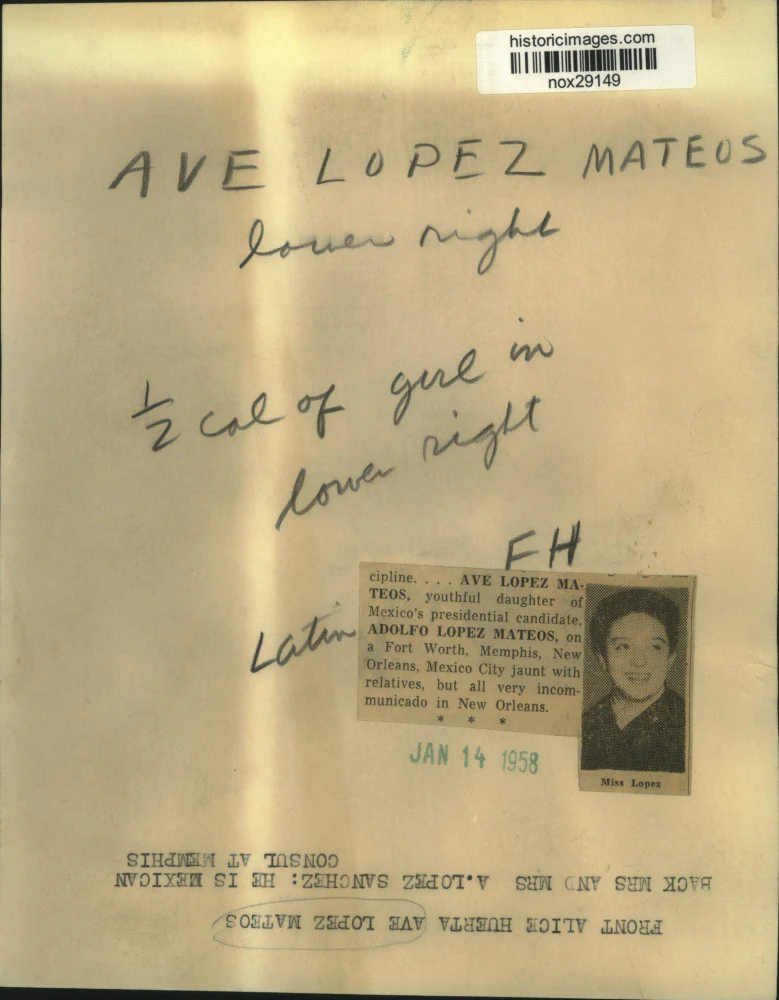 historicimages.com
nox29149
AVE LOPEZ MATEOS
lower right
1/2 col of girl in
lower right
FH
Latin
cipline. . . . AVE LOPEZ MA-
TEOS, youthful daughter of
Mexico's presidential candidate,
ADOLFO LOPEZ MATEOS, on
a Fort Worth, Memphis, New
Orleans, Mexico City jaunt with
relatives, but all very incom-
municado in New Orleans.
* * *
Miss Lopez
JAN 14 1958
FRONT ALICE HUERTA AVE LOPEZ MATEOS
BACK MRS AND MRS A.LOPEZ SANCHEZ: HE IS MEXICAN
CONSUL AT MEMPHIS